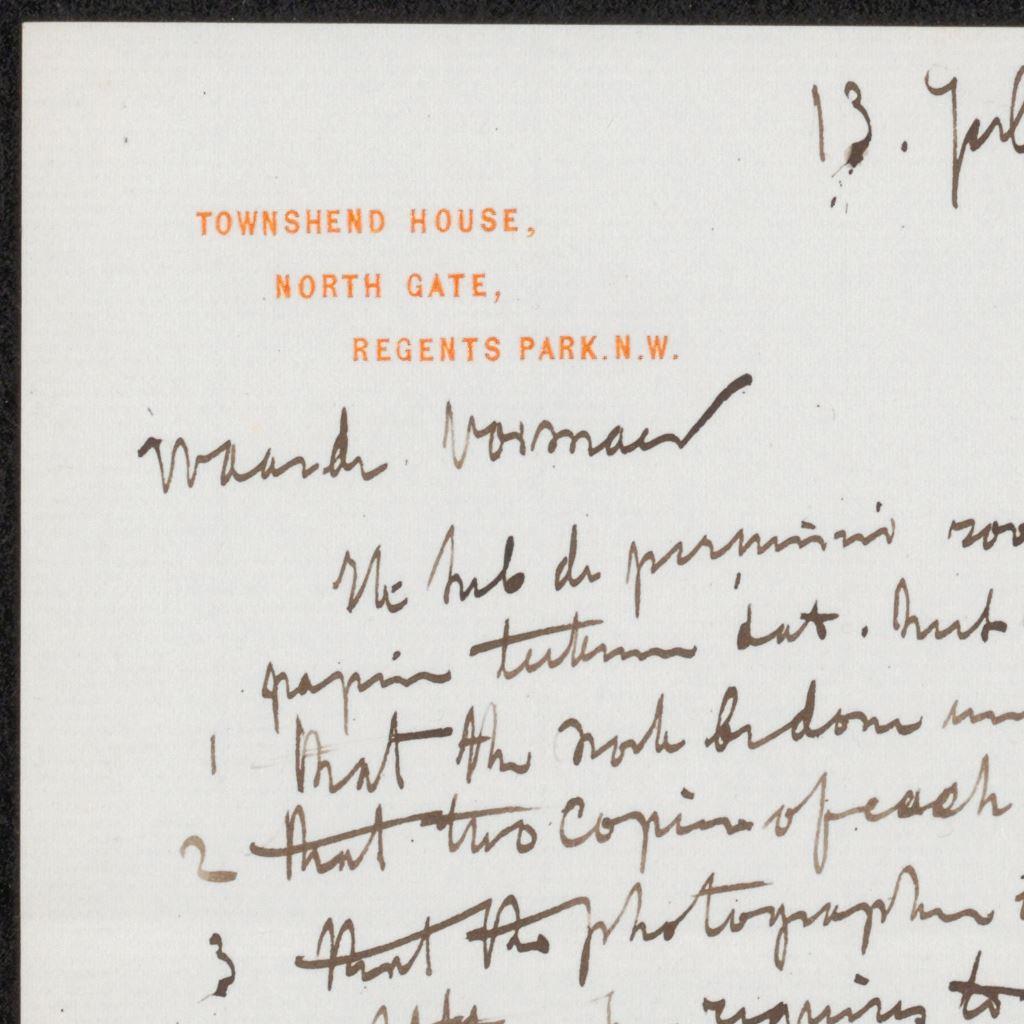 13. Jul
TOWNSHEND HOUSE,
NORTH GATE,
REGENTS PARK.N.W.
Waarde Vosmaer
Ik heb de permissie
papier dat. het
1 that the work be done
2 that two copies of each
3 that the photographer
requires to